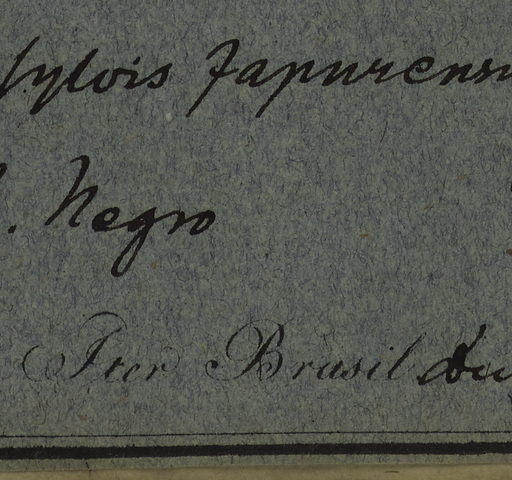 Sylvis Japurensi
. Negro
Iter Brasil